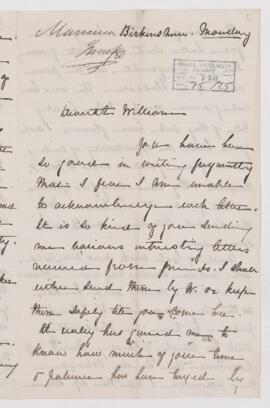 Birkenshaw. Monday
Dearest William
You have been
so good in writing frequently
that I fear I am unable
to acknowledge each letter.
It is so kind of you sending
me various interesting letters
received from friends. I shall
either send them by W. or keep
them safely till you come here.
It only has pained me to
know how much of your time
& patience has been taxed by